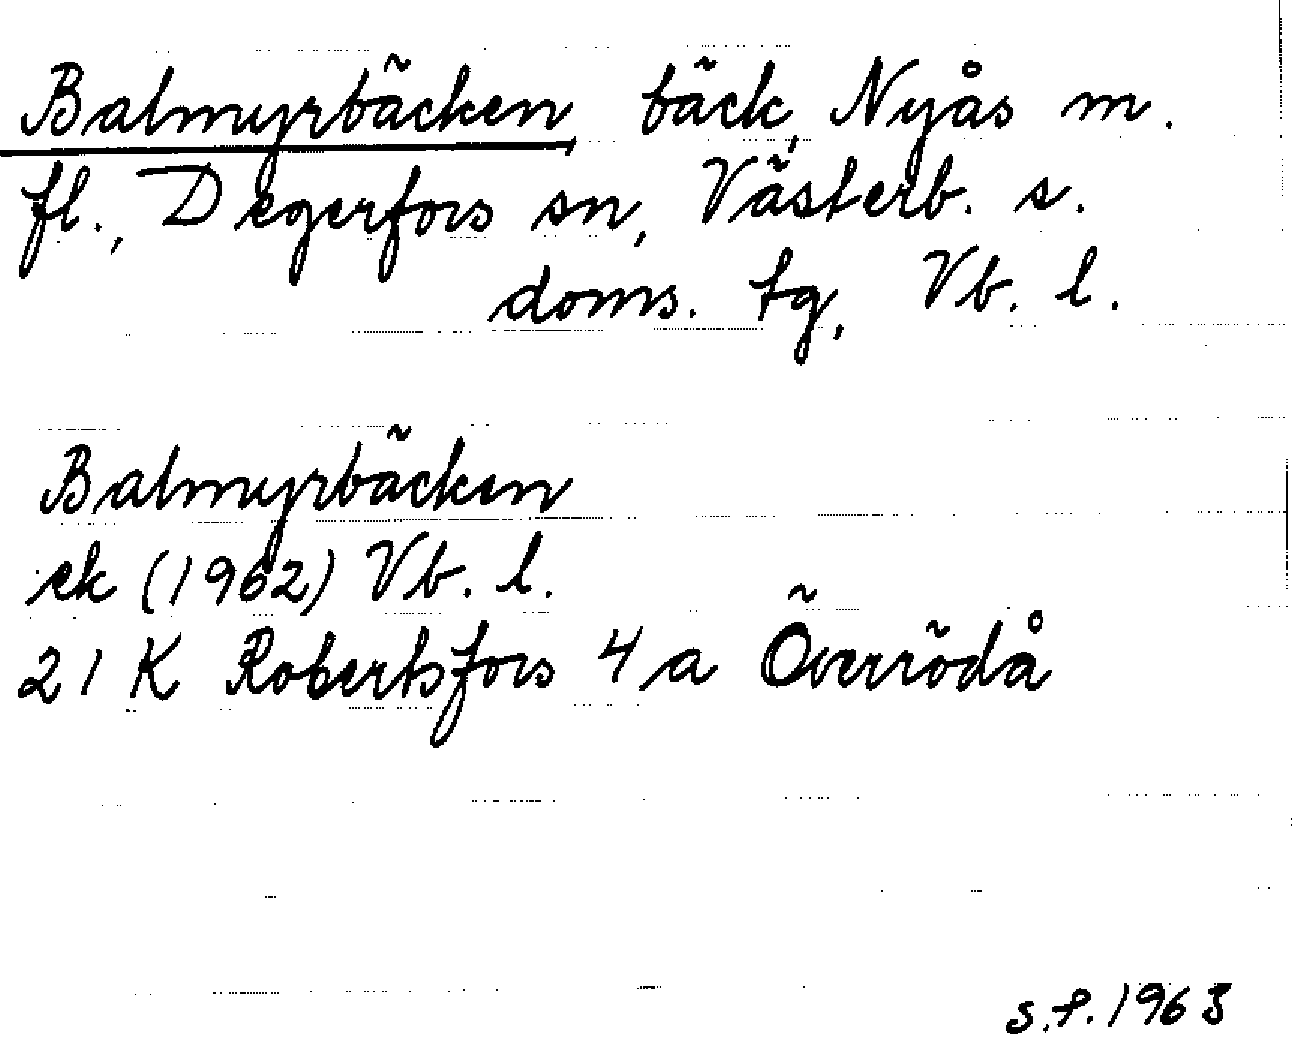 Balmyrbäcken, bäck, Nyås m.
fl., Degerfors sn, Västerb. s.
doms. tg, Vb. l.
Balmyrbäcken
ek (1962) Vb. l.
21 K Robertsfors 4 a Överrödå
s.f. 1963